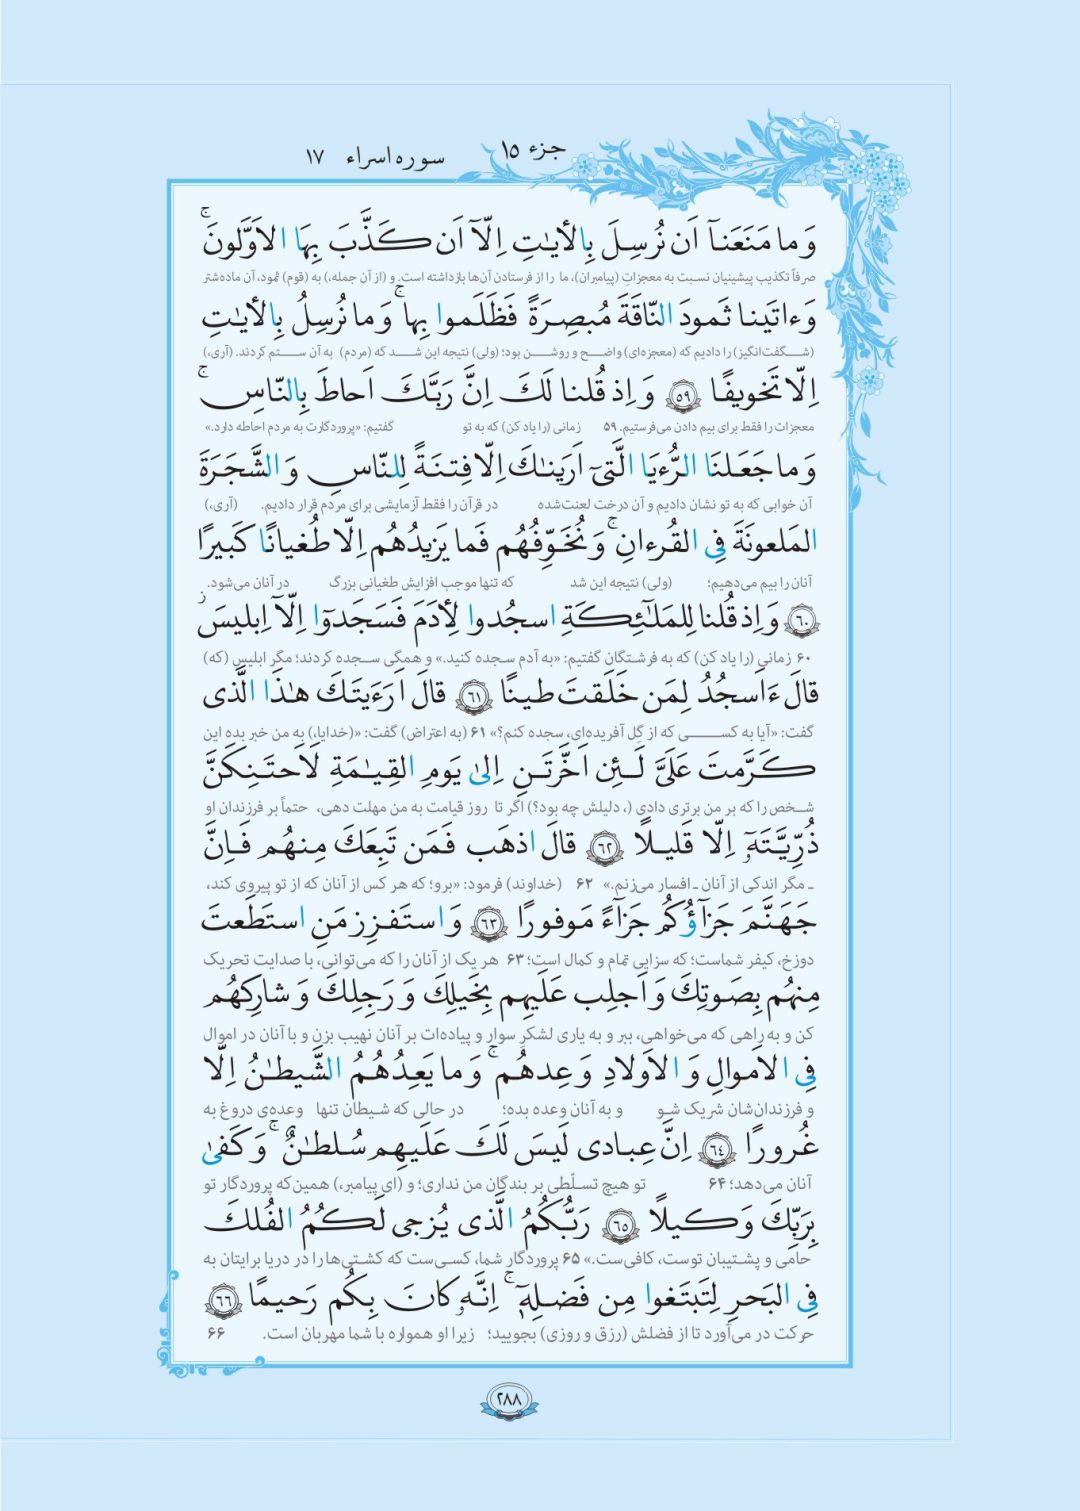 جزء ۱۵
سوره اسراء ۱۷
وَ ما مَنَعَنآ اَن نُرسِلَ بِالأياتِ اِلّآ اَن كَذَّبَ بِهَا الاَوَّلونَ ۚ
صرفاً تکذیب پیشینیان نسبت به معجزاتِ (پیامبران)، ما را از فرستادن آن‌ها بازداشته است. و (از آن جمله،) به (قوم) ثمود، آن ماده‌شتر
وَ ءاتَینا ثَمودَ النّاقَةَ مُبصِرَةً فَظَلَموا بِها ۚ وَ ما نُرسِلُ بِالأیٰاتِ
(شگفت‌انگیز) را دادیم که (معجزه‌ای) واضح و روشن بود؛ (ولی) نتیجه این شد که (مردم) به آن ستم کردند. (آری،)
اِلّا تَخویفًا ﴿٥٩﴾ وَ اِذ قُلنا لَكَ اِنَّ رَبَّكَ اَحاطَ بِالنّاسِ ۚ
معجزات را فقط برای بیم دادن می‌فرستیم. ۵۹ زمانی (را یاد کن) که به تو گفتیم: «پروردگارت به مردم احاطه دارد.»
وَ ما جَعَلنَا الرُّءیَا الَّتیٓ اَرَینٰكَ اِلّا فِتنَةً لِلنّاسِ وَ الشَّجَرَةَ
آن خوابی که به تو نشان دادیم و آن درخت لعنت‌شده در قرآن را فقط آزمایشی برای مردم قرار دادیم. (آری،)
المَلعونَةَ فِی القُرءانِ ۚ وَ نُخَوِّفُهُم فَما یَزیدُهُم اِلّا طُغیانًا كَبیرًا
آنان را بیم می‌دهیم؛ (ولی) نتیجه این شد که تنها موجب افزایش طغیانی بزرگ در آنان می‌شود.
﴿٦٠﴾ وَ اِذ قُلنا لِلمَلٰٓئِكَةِ اسجُدوا لِأدَمَ فَسَجَدوٓا اِلّآ اِبلیسَ ز
۶۰ زمانی (را یاد کن) که به فرشتگان گفتیم: «به آدم سجده کنید.» و همگی سجده کردند؛ مگر ابلیس (که)
قالَ ءَاَسجُدُ لِمَن خَلَقتَ طینًا ﴿٦١﴾ قالَ اَرَءَیتَكَ هٰذَا الَّذی
گفت: «آیا به کسی که از گِل آفریده‌ای، سجده کنم؟» ۶۱ (به اعتراض) گفت: «(خدایا،) به من خبر بده این
كَرَّمتَ عَلَیَّ لَئِن اَخَّرتَنِ اِلیٰ یَومِ القِیٰمَةِ لَاَحتَنِكَنَّ
شخص را که بر من برتری دادی (، دلیلش چه بود؟) اگر تا روز قیامت به من مهلت دهی، حتماً بر فرزندان او
ذُرِّیَّتَهٓ اِلّا قَلیلًا ﴿٦٢﴾ قالَ اذهَب فَمَن تَبِعَكَ مِنهُم فَاِنَّ
ـ مگر اندکی از آنان ـ افسار می‌زنم.» ۶۲ (خداوند) فرمود: «برو؛ که هر کس از آنان که از تو پیروی کند،
جَهَنَّمَ جَزآؤُكُم جَزآءً مَوفورًا ﴿٦٣﴾ وَ استَفزِز مَنِ استَطَعتَ
دوزخ، کیفر شماست؛ که سزایی تمام و کمال است؛ ۶۳ هر یک از آنان را که می‌توانی، با صدایت تحریک
مِنهُم بِصَوتِكَ وَ اَجلِب عَلَیهِم بِخَیلِكَ وَ رَجِلِكَ وَ شارِكهُم
کن و به راهی که می‌خواهی، ببر و به یاری لشکرِ سوار و پیاده‌ات بر آنان نهیب بزن و با آنان در اموال
فِی الاَموالِ وَ الاَولادِ وَ عِدهُم ۚ وَ ما یَعِدُهُمُ الشَّیطٰنُ اِلّا
و فرزندان‌شان شریک شو و به آنان وعده بده؛ در حالی که شیطان تنها وعده‌ی دروغ به
غُرورًا ﴿٦٤﴾ اِنَّ عِبادی لَیسَ لَكَ عَلَیهِم سُلطٰنٌ ۚ وَ كَفیٰ
آنان می‌دهد؛ ۶۴ تو هیچ تسلّطی بر بندگان من نداری؛ و (ای پیامبر،) همین‌که پروردگار تو
بِرَبِّكَ وَكیلًا ﴿٦٥﴾ رَبُّكُمُ الَّذی یُزجی لَكُمُ الفُلكَ
حامی و پشتیبان توست، کافی‌ست.» ۶۵ پروردگار شما، کسی‌ست که کشتی‌ها را در دریا برایتان به
فِی البَحرِ لِتَبتَغوا مِن فَضلِهٓ ۚ اِنَّهُ كانَ بِكُم رَحیمًا ﴿٦٦﴾
حرکت در می‌آورد تا از فضلش (رزق و روزی) بجویید؛ زیرا او همواره با شما مهربان است. ۶۶
۲۸۸